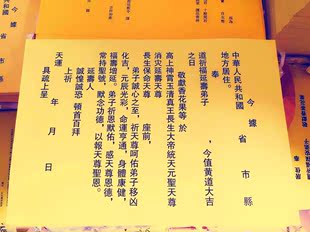 今據　　省　市　縣
中華人民共和國
地方居住。
奉
道祈福延壽弟子
之日　　今值黃道大吉
敬獻香花果等　於
高上神霄玉清真王長生大帝統天元聖天尊
消灾延壽天尊
長生保命天尊
座前，
弟子誠心之至，祈天尊呵佑弟子移凶
化吉，元辰光彩，命運亨通，身體康健，
福壽增延。弟子祈恩默佑，感天尊恩德，以
常持聖號，默念功德，以報天尊聖恩。
延壽人
誠惶誠恐　頓首百拜
上祈
天運　　年　月　日
具疏上呈